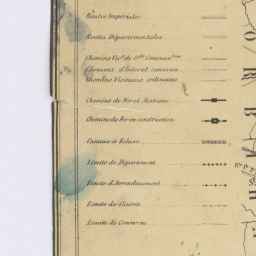 Routes Impériales
Routes Départementales
Chemins Vic. de Gde Commun.tion
Chemins d'Intérêt commun
Chemins Vicinaux ordinaires
Chemins de fer et Stations
Chemins de fer en construction
Canaux et Écluses
Limite de Département
Limite d'Arrondissement
Limite de Canton
Limite de Commune
O
R
B
A